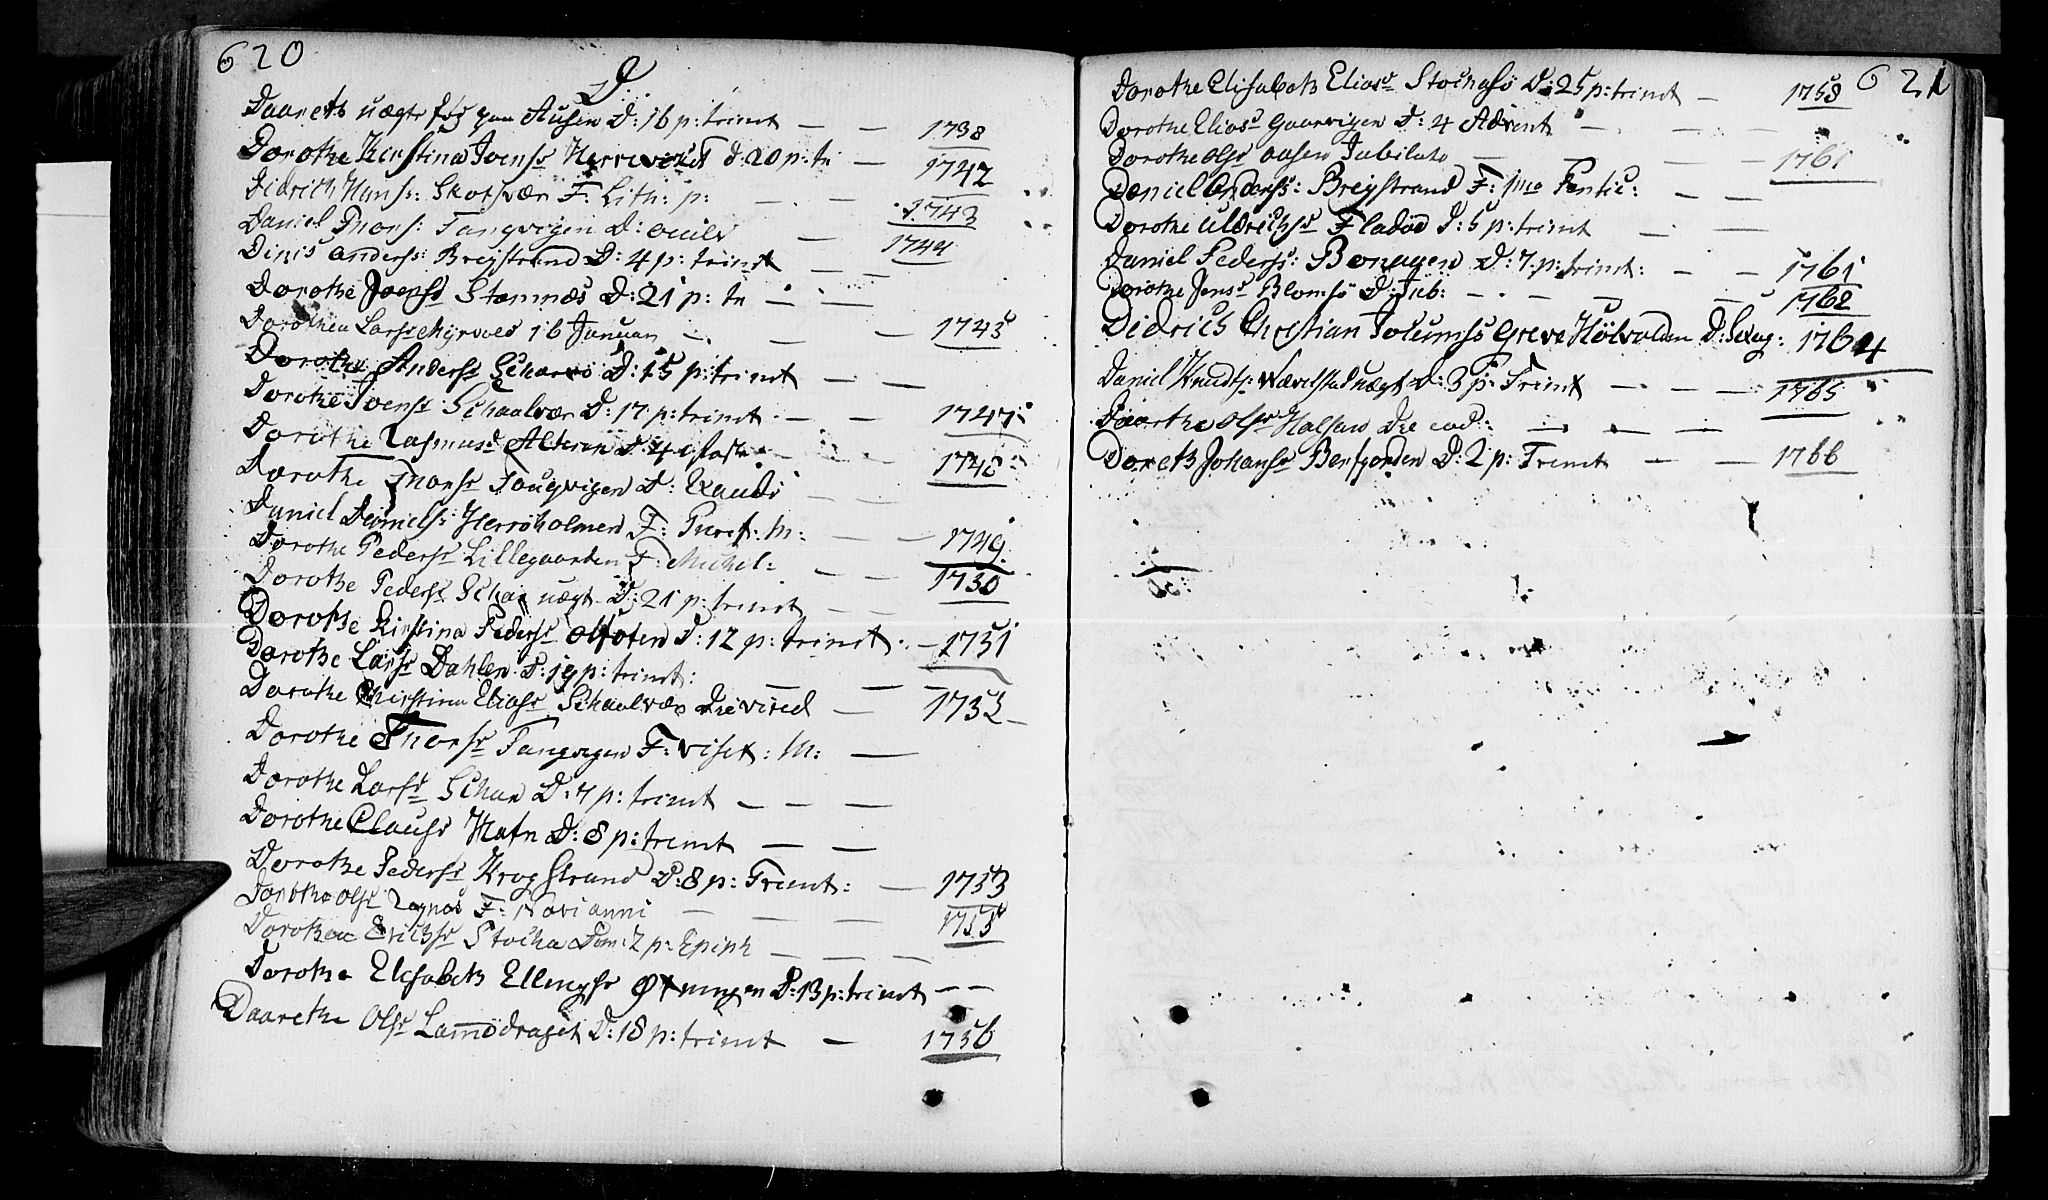 620
D.
Daareth uægte Ausen D: 16 p: trinit — — 1738
Dorothe Kirstina Joensr Herrevold D. 20 p: tr — 1742
Didrich Hans: Skotsvær F. Lith: p: — — 1743
Daniel Thors: Tangvigen D: oculi — 1744
Dinis anderss: Breystrand D: 4 p: trinit — —
Dorothe Joensr Stamnæs D: 21 p: tr — —
Dorothea Larsr Myrvold 16 Januari — — — 1745
Dorothe Andersr D: 15 p: trinit — —
Dorothe Ivensr Schaalvær D: 17 p: trinit — — 1747
Dorothe Rasmusd Alteren D: 4 — — 1748
Dorothe Thorsr Tougvigen D: Laudi — —
Daniel Daniels: Herröholmen F: Purif: M: — — 1749
Dorothe Pedersr Lillegaarden F: Michel: — — 1750
Dorothe Pedersr uægt. D: 21 p: trinit — —
Dorothe Kirstina Pedersr D: 12 p: trinit — 1751
Dorothe Larsr Dahlen D: 19 p: trinit: — — —
Dorothe Chirstina Eliasr Schaalvær Die vised — 1752
Dorothe Thorsr Tangvigen F: visit: M: —
Dorothe Larsr D: 7 p: trinit — — —
Dorothe Clausr Hafn D: 8 p: trinit — —
Dorothe Pedersr Krogstrand D: 8 p: Trinit: — 1753
Dorothe Olsr F: Novi anni — — — 1755
Dorothea Erichsr Stocka Dom: 2 p: Epiph — — —
Dorothe Elisabeth Ellingsr D: 13 p: trinit — —
Daarethe Olsr Lamödraget D: 18 p: trinit — 1756
621
Dorothe Elisabeth Eliasr D: 25 p: trinit — 1758
Dorothe Eliasr Gaarvigen D: 4 Advent — — —
Dorothe Olsr aasen Jubilate — — — 1761
Daniel Anderss: Breystrand F: — —
Dorothe Uldrichsr Fladöe D: 5 p: trinit — —
Daniel Peders: D: 7. p: trinit: — — 1761
Dorothe Jensr Blomsö D: Jub: — — — 1762
Didrich Christian Greve Hölvolden D: Sexag: 1764
Daniel Knudts: uægt D: 3 p: Trinit — — — 1765
Daarthe Olsr Halsen Die — — —
Doreth Johansr Berfjorden D: 2 p: Trinit — — 1766